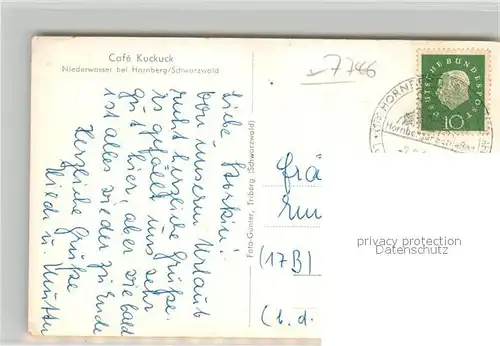 Café Kuckuck
Niederwasser bei Hornberg/Schwarzwald
7746
DEUTSCHE BUNDESPOST
10
HORNBERG
Hornberger Schießen
Liebe
von unserm Urlaub
recht herzliche Grüße.
es gefällt uns sehr
gut hier, aber wie bald
ist alles wieder zu Ende
Herzliche Grüße
Heidi u. Mutti
Foto-Gunter, Triberg (Schwarzwald)
(17B)
privacy protection
Datenschutz